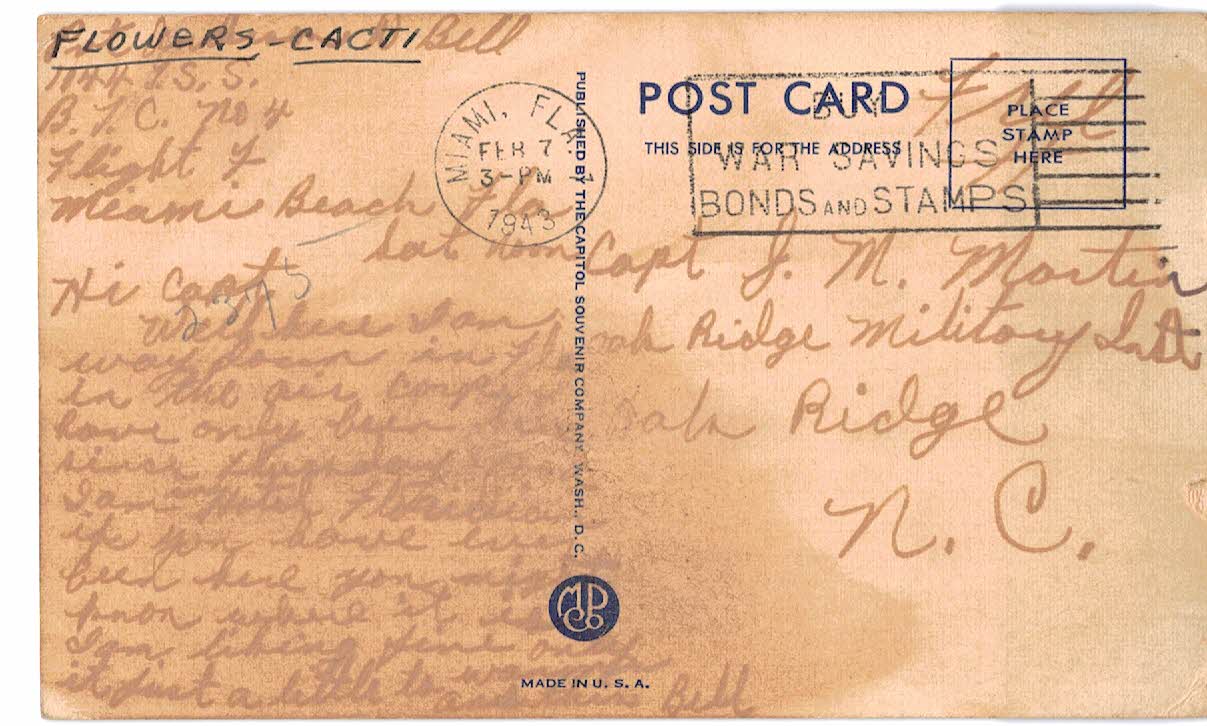 FLOWERS - CACTI
Bell
T.S.S.
B.T.C. No 4
Flight F
Meami Beach Fla
Sat noon
Hi Capt
2375
Well here I am
way down in
in the air corp
have only been
since
I am Hotel
if you have ever
been here you might
know where it is
I am liking fine only
it just a little to warm
Bell
MIAMI, FLA.
FEB 7
3-PM
1943
BUY
WAR SAVINGS
BONDS AND STAMPS
POST CARD
THIS SIDE IS FOR THE ADDRESS
PLACE
STAMP
HERE
Free
Capt J. M. Martin
Oak Ridge Military Inst
Oak Ridge
N. C.
PUBLISHED BY THE CAPITOL SOUVENIR COMPANY, WASH., D. C.
MPCo
MADE IN U. S. A.